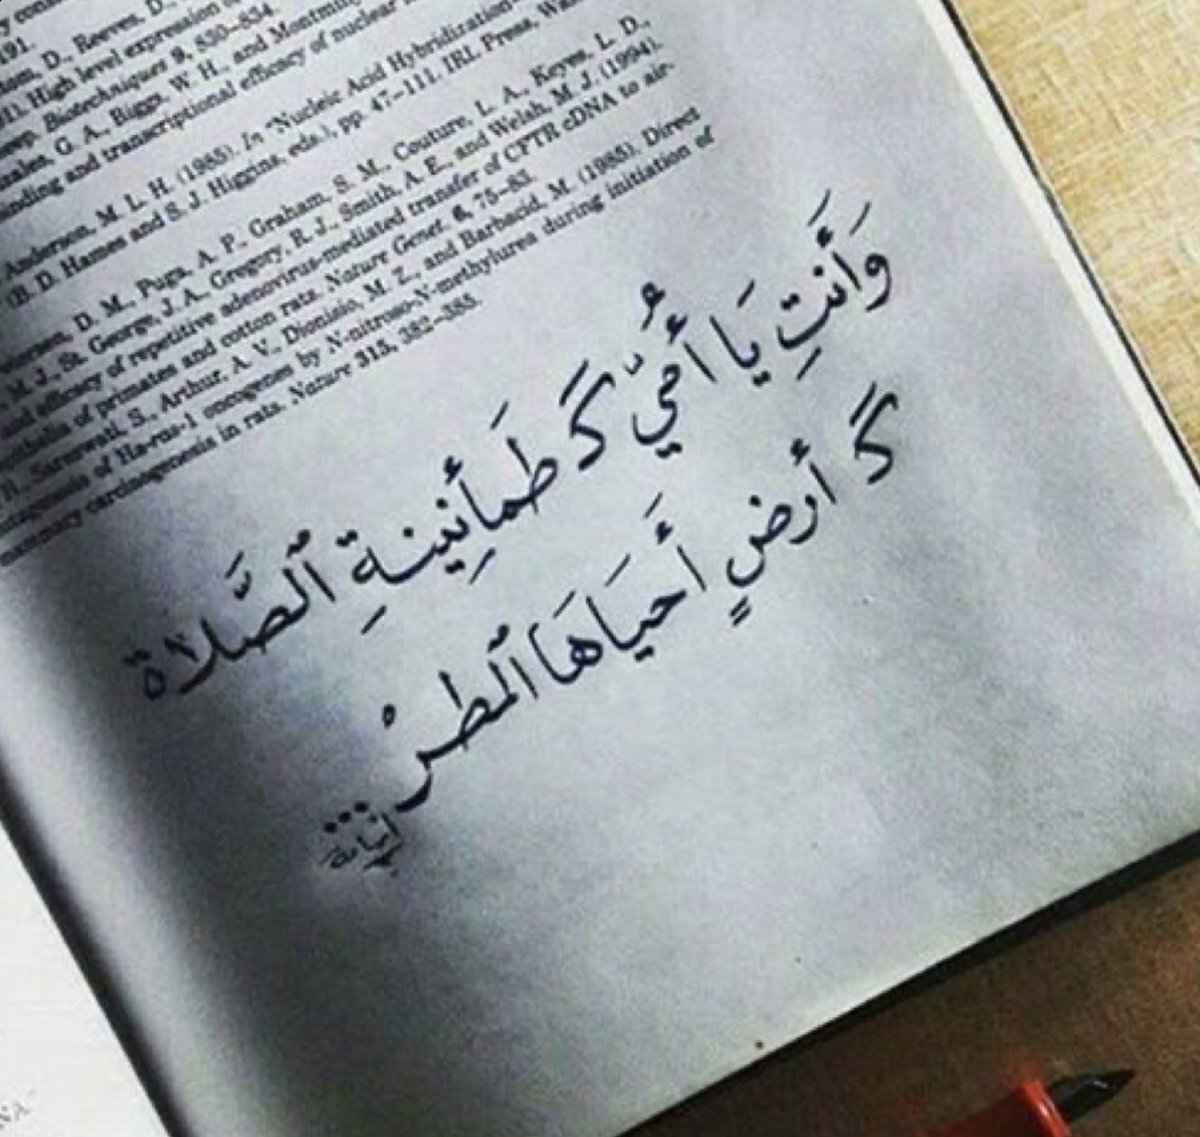 91.
D., Reeves, D.,
High level expression
Biotechniques 9, 830–834.
G. A., Biggs, W. H., and Montminy
and transcriptional efficacy of nuclear
Anderson, M. L. M. (1985). In "Nucleic Acid Hybridization
(B. D. Hames and S. J. Higgins, eds.), pp. 47–111. IRL Press, Wash
D. M., Pugs, A. P., Graham, S. M., Couture, L. A., Keyes, L. D.,
M. J., St. George, J. A., Gregory, R. J., Smith, A. E., and Welsh, M. J. (1994).
and efficacy of repetitive adenovirus-mediated transfer of CFTR cDNA to air-
of primates and cotton rats. Nature Genet. 6, 75–83.
Saraswati, S., Arthur, A. V., Dionisio, M. Z., and Barbacid, M. (1985). Direct
of Ha-ras-1 oncogenes by N-nitroso-N-methylurea during initiation of
mammary carcinogenesis in rats. Nature 315, 382–385.
وَأَنتِ يَا أُمّي كَ طَمأنِينةِ ٱلصَّلاة
كَ أرضٍ أَحيَاهَا ٱلمطرْ...